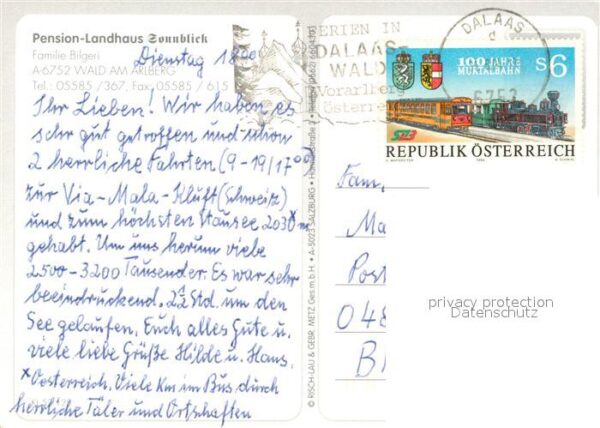 Pension-Landhaus Sonnblick
Familie Bilgeri
A-6752 WALD AM ARLBERG
Tel.: 05585 /367, Fax. 05585 / 615
Dienstag 18°°
Ihr Lieben! Wir haben es
sehr gut getroffen und schon
2 herrliche Fahrten (9-19/17°°)
zur Via-Mala-Kluft (Schweiz)
und zum höchsten Stausee 2030 m
gehabt. Um uns herum viele
2500-3200 Tausender. Es war sehr
beeindruckend. 2½ Std. um den
See gelaufen. Euch alles Gute u.
viele liebe Grüße Hilde u. Hans.
*Oesterreich. Viele Km im Bus durch
herrliche Täler und Ortschaften
© RISCH-LAU & GEBR. METZ Ges.m.b.H. • A-5023 SALZBURG
FERIEN IN
DALAAS-
WALD
Vorarlberg
Österreich
DALAAS
d
6752
100 JAHRE
MURTALBAHN
S6
REPUBLIK ÖSTERREICH
Fam.
Ma
Post
048
B
privacy protection
Datenschutz